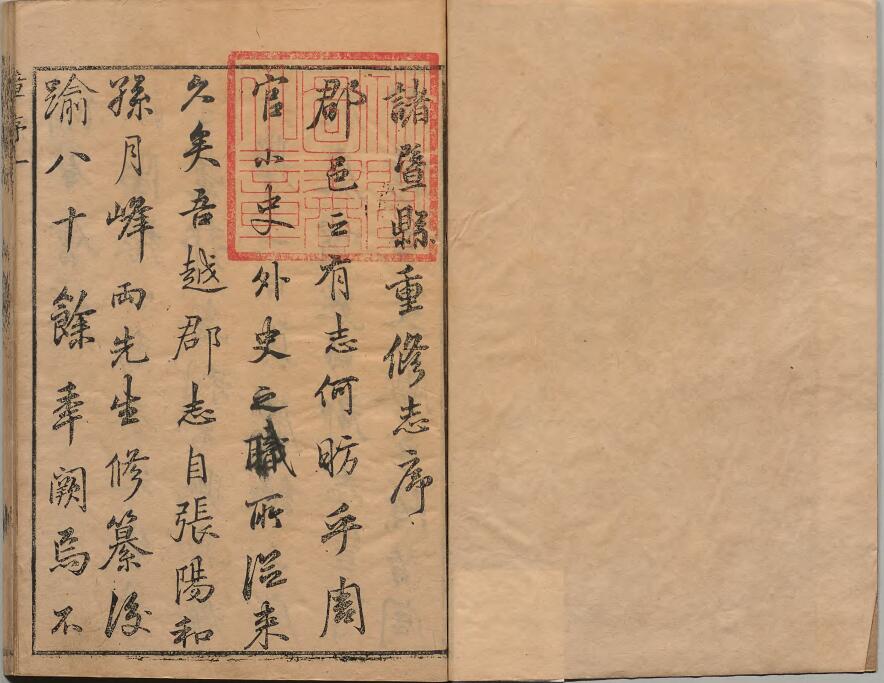 諸暨縣重修志序
郡邑之有志何昉乎周
官小史外史之職所從来
久矣吾越郡志自張陽和
孫月峰兩先生修纂後
踰八十餘年闕焉不
章序一